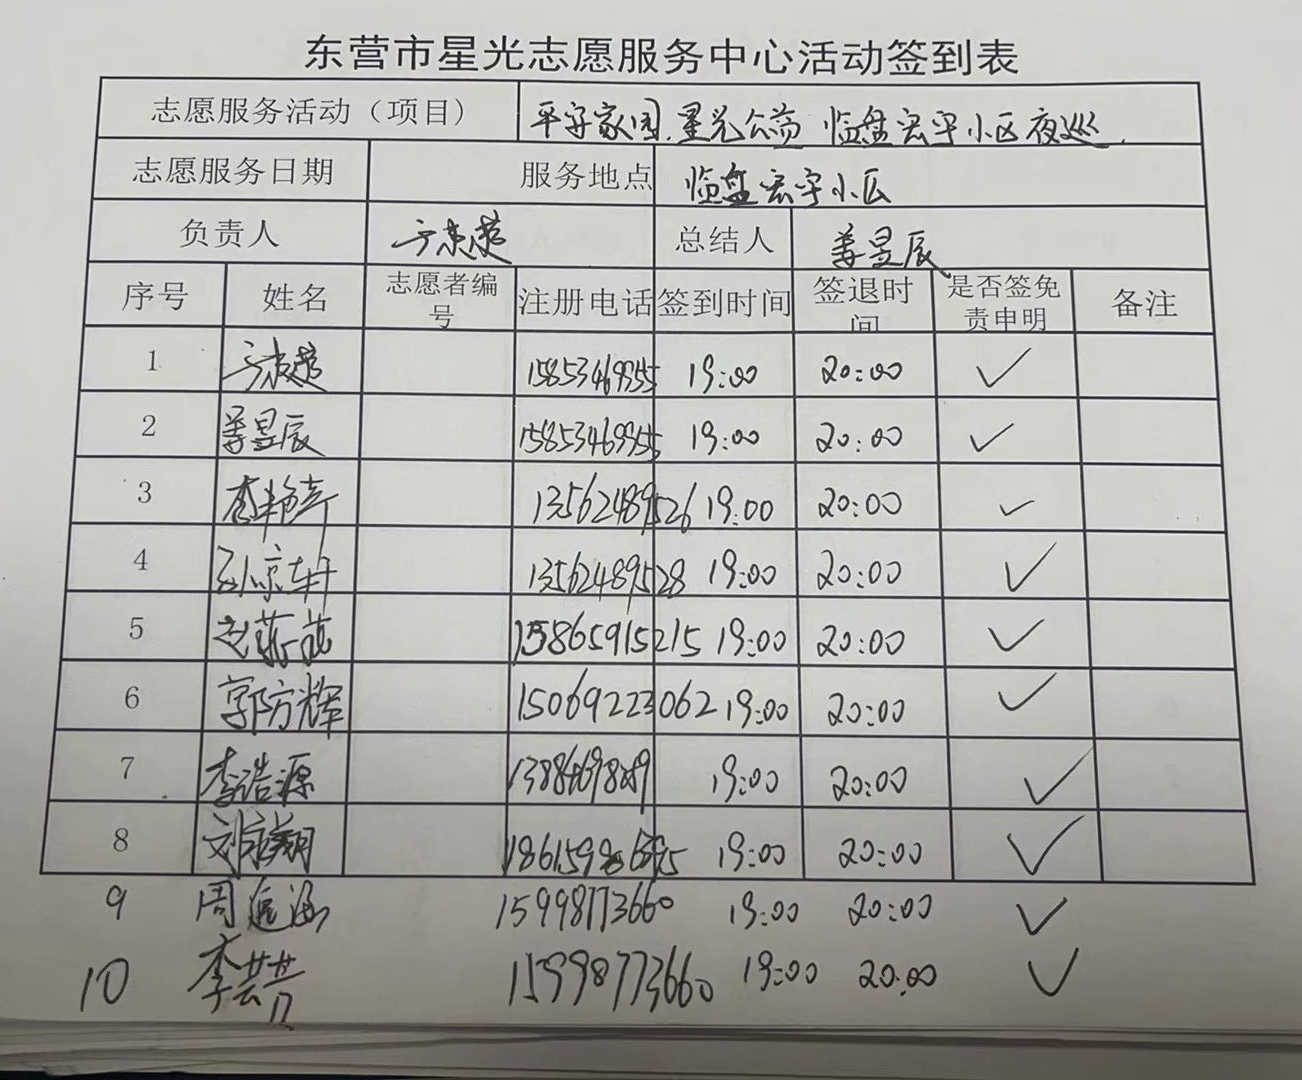 东营市星光志愿服务中心活动签到表
志愿服务活动（项目） 平安家园.星光公益 临盘宏宇小区夜巡.
志愿服务日期 服务地点 临盘宏宇小区
负责人 总结人 姜昱辰
序号 姓名 志愿者编号 注册电话 签到时间 签退时间 是否签免责申明 备注
1 15853469955 19:00 20:00 ✓
2 姜昱辰 15853469955 19:00 20:00 ✓
3 13562489526 19:00 20:00 ✓
4 孙京轩 13562489528 19:00 20:00 ✓
5 15865915215 19:00 20:00 ✓
6 郭方辉 15069223062 19:00 20:00 ✓
7 李浩源 19:00 20:00 ✓
8 19:00 20:00 ✓
9 15998773660 19:00 20:00 ✓
10 15998773660 19:00 20:00 ✓